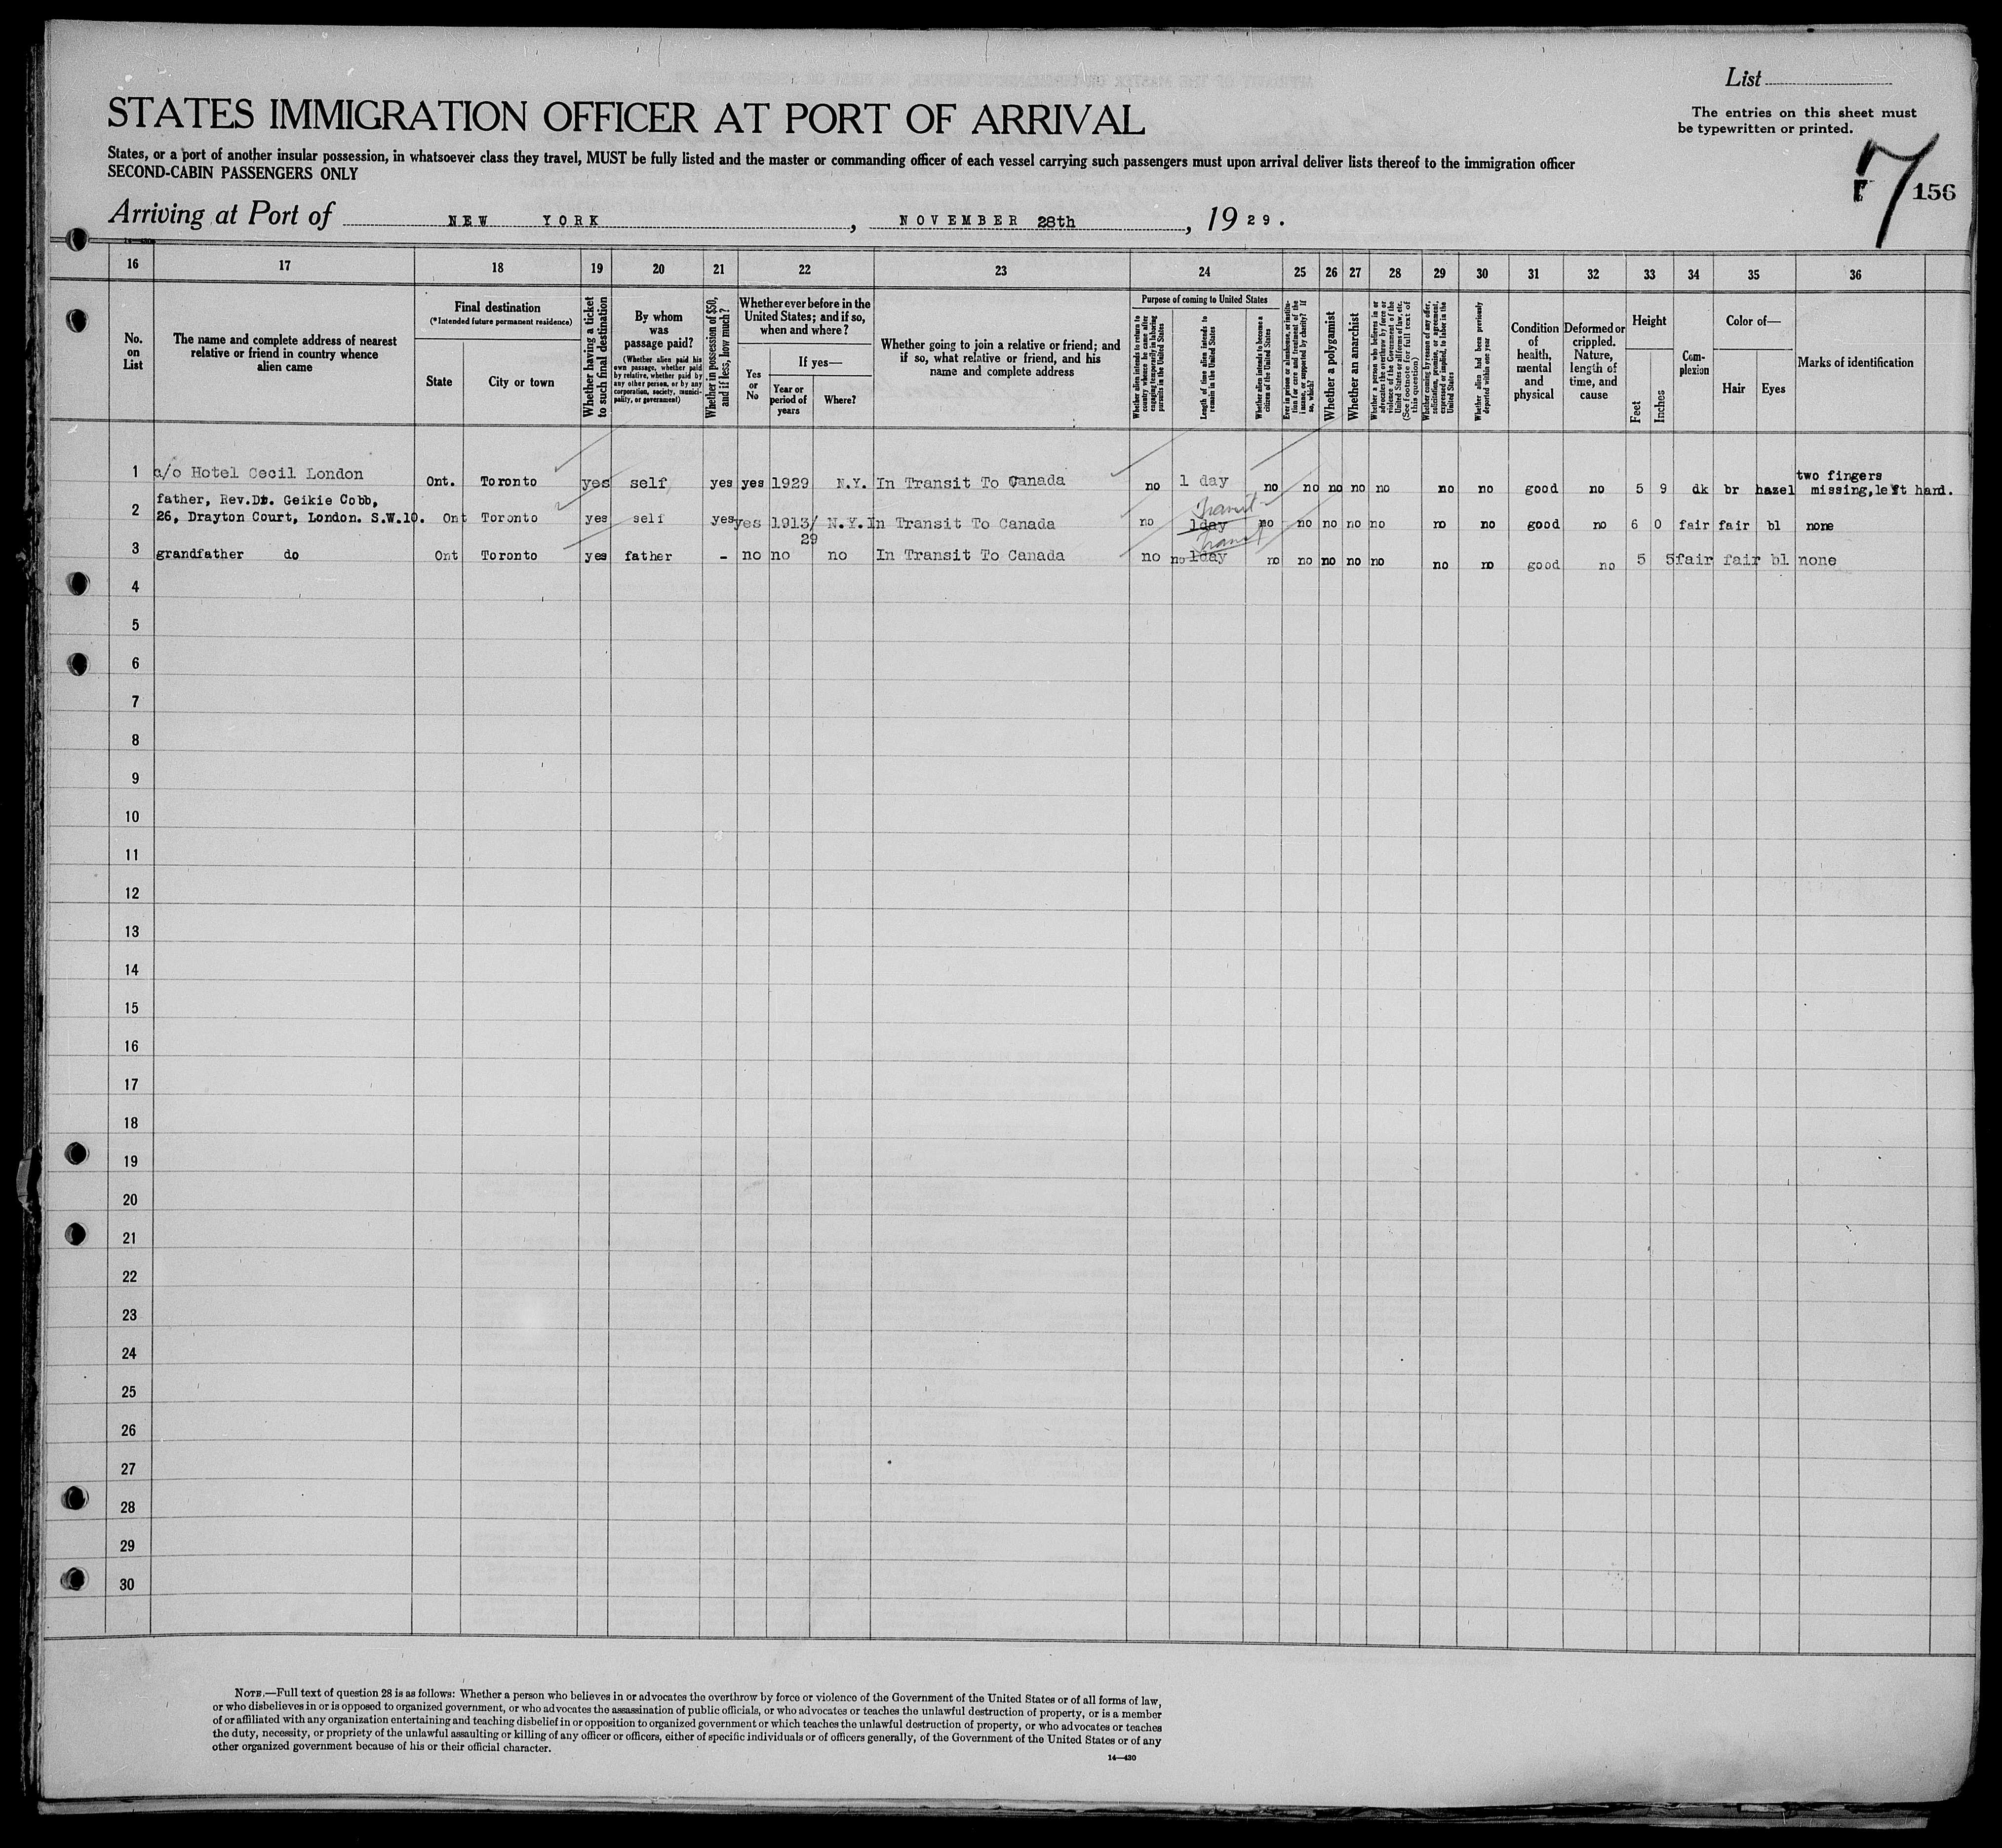 List
The entries on this sheet must
be typewritten or printed.
STATES IMMIGRATION OFFICER AT PORT OF ARRIVAL
States, or a port of another insular possession, in whatsoever class they travel, MUST be fully listed and the master or commanding officer of each vessel carrying such passengers must upon arrival deliver lists thereof to the immigration officer
SECOND-CABIN PASSENGERS ONLY
7 156
Arriving at Port of NEW YORK, NOVEMBER 28th, 1929.
16 17 18 19 20 21 22 23 24 25 26 27 28 29 30 31 32 33 34 35 36
No. on List
The name and complete address of nearest
relative or friend in country whence
alien came
Final destination
(*Intended future permanent residence)
State
City or town
Whether having a ticket
to such final destination
By whom
was
passage paid?
(Whether alien paid his
own passage, whether paid
by relative, whether paid by
any other person, or by any
corporation, society, munici-
pality, or government)
Whether in possession of $50,
and if less, how much?
Whether ever before in the
United States; and if so,
when and where?
Yes
or
No
If yes—
Year or
period of
years
Where?
Whether going to join a relative or friend; and
if so, what relative or friend, and his
name and complete address
Purpose of coming to United States
Whether alien intends to return to
country whence he came after
engaging temporarily in laboring
pursuits in the United States
Length of time alien intends to
remain in the United States
Whether alien intends to become a
citizen of the United States
Ever in prison or almshouse, or institu-
tion for care and treatment of the
insane, or supported by charity? If
so, which?
Whether a polygamist
Whether an anarchist
Whether a person who believes in or
advocates the overthrow by force or
violence of the Government of the
United States or all forms of law, etc.
(See footnote for full text of
this question)
Whether coming by reason of any offer,
solicitation, promise, or agreement,
expressed or implied, to labor in the
United States
Whether alien had been previously
deported within one year
Condition
of
health,
mental
and
physical
Deformed or
crippled.
Nature,
length of
time, and
cause
Height
Feet
Inches
Com-
plexion
Color of—
Hair
Eyes
Marks of identification
1 c/o Hotel Cecil London Ont. Toronto yes self yes yes 1929 N.Y. In Transit To Canada no 1 day no no no no no no no good no 5 9 dk br hazel two fingers
missing, left hand.
father, Rev.Dr. Geikie Cobb,
2 26, Drayton Court, London. S.W.10. Ont Toronto yes self yes yes 1913/ N.Y. In Transit To Canada no 1day Transit no no no no no no no good no 6 0 fair fair bl none
29
3 grandfather do Ont Toronto yes father - no no no In Transit To Canada no no 1day Transit no no no no no no no good no 5 5 fair fair bl none
4
5
6
7
8
9
10
11
12
13
14
15
16
17
18
19
20
21
22
23
24
25
26
27
28
29
30
NOTE.—Full text of question 28 is as follows: Whether a person who believes in or advocates the overthrow by force or violence of the Government of the United States or of all forms of law,
or who disbelieves in or is opposed to organized government, or who advocates the assassination of public officials, or who advocates or teaches the unlawful destruction of property, or is a member
of or affiliated with any organization entertaining and teaching disbelief in or opposition to organized government or which teaches the unlawful destruction of property, or who advocates or teaches
the duty, necessity, or propriety of the unlawful assaulting or killing of any officer or officers, either of specific individuals or of officers generally, of the Government of the United States or of any
other organized government because of his or their official character.
14—430